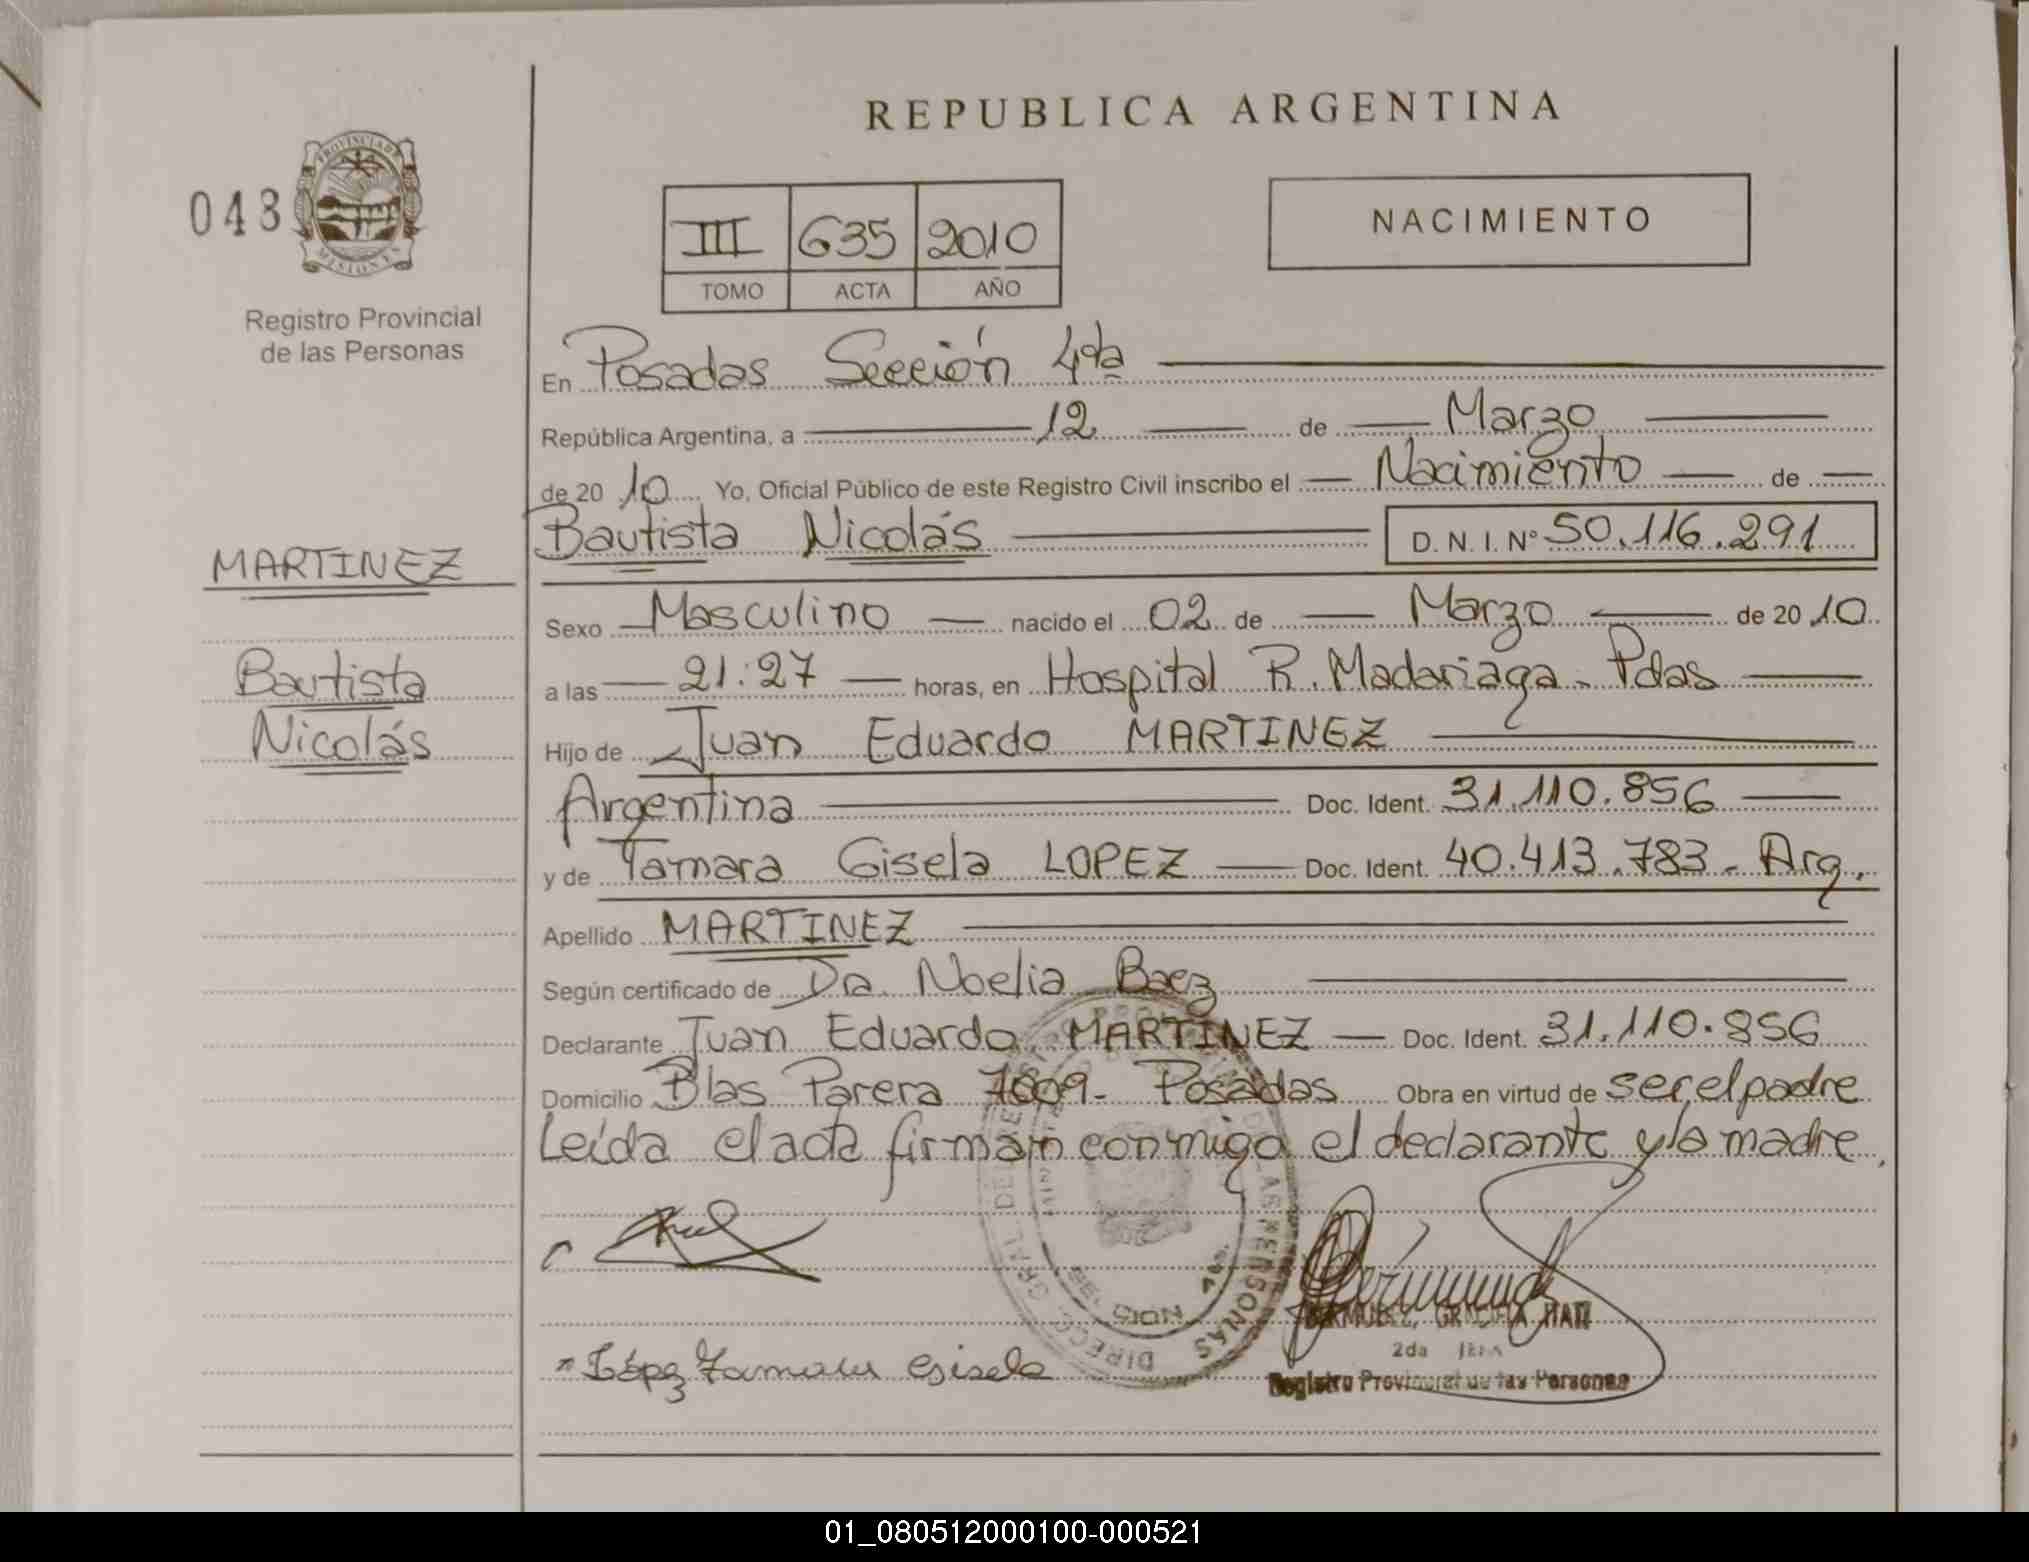 REPUBLICA ARGENTINA
043
PROVINCIA DE
MISIONES
Registro Provincial
de las Personas
III 635 2010
TOMO ACTA AÑO
NACIMIENTO
En Posadas Sección 4ta
República Argentina, a 12 de Marzo
de 2010 Yo, Oficial Público de este Registro Civil inscribo el Nacimiento de
Bautista Nicolás D. N. I. Nº 50.116.291
MARTINEZ
Bautista
Nicolás
Sexo Masculino nacido el 02 de Marzo de 2010
a las 21:27 horas, en Hospital R. Madariaga - Pdas
Hijo de Juan Eduardo MARTINEZ
Argentina Doc. Ident. 31.110.856
y de Tamara Gisela LOPEZ Doc. Ident. 40.413.783 - Arg.
Apellido MARTINEZ
Según certificado de Dra. Noelia Baez
Declarante Juan Eduardo MARTINEZ Doc. Ident. 31.110.856
Domicilio Blas Parera 7809 - Posadas Obra en virtud de ser el padre
Leída el acta firman conmigo el declarante y la madre.
López Tamara Gisela
2da
Registro Provincial de las Personas
01_080512000100-000521